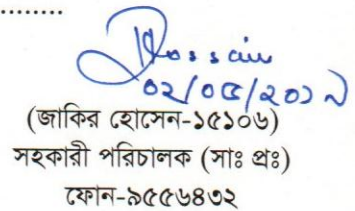 ........
Hossain
০২/০৫/২০১৯
(জাকির হোসেন-১৫১০৬)
সহকারী পরিচালক (সাঃ প্রঃ)
ফোন-৯৫৫৬৪৩২